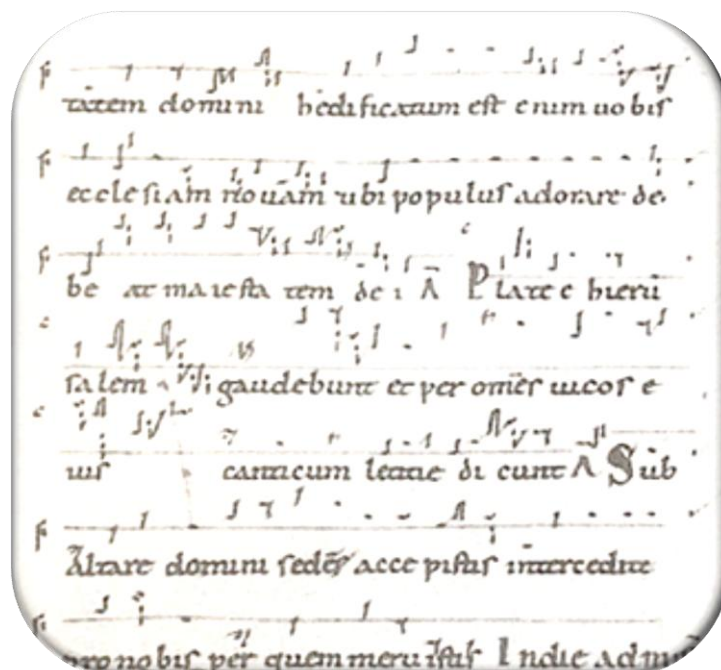 tatem domini hedificatum est enim uobis
ecclesiam nouam ubi populus adorare de
be at maiesta tem de i A Plate e hierū
salem gaudebunt et per omēs uicos e
ius canticum letitie di cunt A Sub
Altare domini sedes accepistis intercedite
pro nobis per quem meruistis In die ad